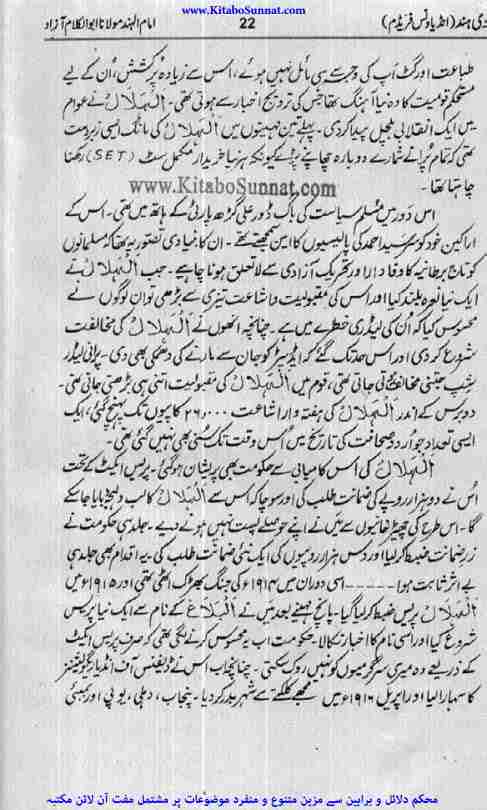 www.KitaboSunnat.com
دی ہند (انڈیا ونس فریڈم) 22 امام الہند مولانا ابوالکلام آزاد
طباعت اور گٹ اَپ کی وجہ سے ہی مائل نہیں ہوئے، اس سے زیادہ پُرکشش، اُن کے لیے
مستحکم قومیت کا وہ نیا آہنگ تھا جس کی ترویج اخبار سے ہوتی تھی۔ اَلْہِلَالْ نے عوام
میں ایک انقلابی ہلچل پیدا کر دی۔ پہلے تین مہینوں میں اَلْہِلَالْ کی مانگ ایسی زبردست
تھی کہ تمام پُرانے شمارے دوبارہ چھاپنے پڑے کیونکہ ہر نیا خریدار مکمل سٹ (SET) رکھنا
چاہتا تھا۔
www.KitaboSunnat.com
اس دَور میں مُسلم سیاست کی باگ ڈور علی گڑھ پارٹی کے ہاتھ میں تھی۔ اس کے
اراکین خود کو سرسید احمد کی پالیسیوں کا امین سمجھتے تھے۔ ان کا بنیادی تصور یہ تھا کہ مسلمانوں
کو تاجِ برطانیہ کا وفادار اور تحریک آزادی سے لاتعلق ہونا چاہیے۔ جب اَلْہِلَالْ نے
ایک نیا نعرہ بلند کیا اور اس کی مقبولیت و اشاعت تیزی سے بڑھی تو ان لوگوں نے
محسوس کیا کہ اُن کی لیڈری خطرے میں ہے۔ چنانچہ انھوں نے اَلْہِلَالْ کی مخالفت
شروع کر دی اور اس حد تک گئے کہ ایڈیٹر کو جان سے مارنے کی دھمکی بھی دی۔ پرانی لیڈر
شپ جتنی مخالف ہوتی جاتی تھی، قوم میں اَلْہِلَالْ کی مقبولیت اتنی ہی بڑھتی جاتی تھی۔
دو برس کے اندر اَلْہِلَالْ کی ہفتہ وار اشاعت ۲۶,۰۰۰ کاپیوں تک پہنچ گئی، ایک
ایسی تعداد جو اُردو صحافت کی تاریخ میں اُس وقت تک سُنی بھی نہیں گئی تھی۔
اَلْہِلَالْ کی اس کامیابی سے حکومت بھی پریشان ہو گئی۔ پریس ایکٹ کے تحت
اُس نے دو ہزار روپے کی ضمانت طلب کی اور سوچا کہ اس سے اَلْہِلَالْ کا لب و لہجہ دبایا جا سکے
گا۔ اس طرح کی چھیڑ خانیوں سے میں نے اپنے حوصلے پست نہیں ہونے دیے۔ جلد ہی حکومت نے
زرِ ضمانت ضبط کر لیا اور دس ہزار روپیوں کی ایک نئی ضمانت طلب کی۔ یہ اقدام بھی جلد ہی
بے اثر ثابت ہوا ----- اسی دوران میں ۱۹۱۴ء کی جنگ بھڑک اٹھی تھی اور ۱۹۱۵ء میں
اَلْہِلَالْ پریس ضبط کر لیا گیا۔ پانچ مہینے بعد میں نے اَلْبَلَاغْ کے نام سے ایک نیا پریس
شروع کیا اور اسی نام کا اخبار نکالا۔ حکومت اب یہ محسوس کرنے لگی تھی کہ صرف پریس ایکٹ
کے ذریعے وہ میری سرگرمیوں کو نہیں روک سکتی۔ چنانچہ اب اس نے ڈیفنس آف انڈیا ریگولیشنز
کا سہارا لیا اور اپریل ۱۹۱۶ء میں مجھے کلکتے سے شہر بدر کر دیا۔ پنجاب، دہلی، یو پی اور بمبئی
محکم دلائل و براہین سے مزین متنوع و منفرد موضوعات پر مشتمل مفت آن لائن مکتبہ